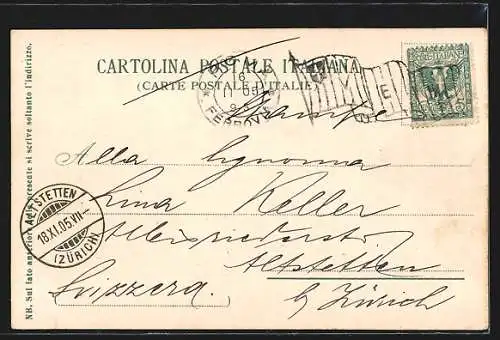 CARTOLINA POSTALE ITALIANA
(CARTE POSTALE D'ITALIE)
Stampe
Alla Signorina
Lina Keller
Altstetten
b/ Zürich
Svizzera.
ALTSTETTEN
18.XI.05.VII-
(ZÜRICH)
FERROVIA
NB. Sul lato anteriore della presente si scrive soltanto l'indirizzo.